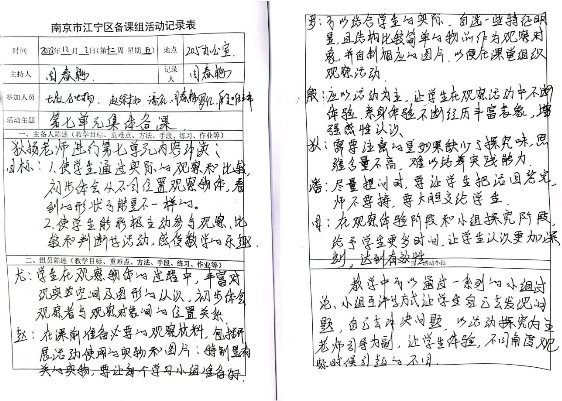 南京市江宁区备课组活动记录表
时间
地点
205办公室
主持人
周春鹏
记录人
周春鹏
参加人员
活动主题
第七单元集体备课
一、主备人陈述（教学目标、重难点、方法、手段、练习、作业等）
狄杨老师进行第七单元内容讲读：
目标：1.使学生通过实际的观察和比较，
初步体会从不同位置观察物体，看
到的形状可能是不一样的。
2.使学生能积极主动参与观察、比
较和判断等活动，感受数学的乐趣。
二、组员陈述（教学目标、重难点、方法、手段、练习、作业等）
龙：学生在观察物体的过程中，丰富对
现实空间及图形的认识，初步体会
观察者与观察对象间的位置关系
赵：在课前准备必要的观察材料，包括开
展活动使用的实物和图片；特别是有
关的实物，要让每个学习小组准备好。
罗：可以结合学生的实际，自选一些特征明
显，且结构比较简单的物品作为观察对
象，并自制相应的图片，以便在课堂组织
观察活动。
应以活动为主，让学生在观察活动中不断
体验，亲身体验不断经历丰富表象，增
强感性认识。
需要注意的是如果缺少了探究味，思
维含量不高，难以培养实践能力。
尽量把时间，要让学生把话回答完，
师不要替，要大胆交给学生。
周：在观察体验阶段和小组探究阶段，
给予学生更多时间，让学生认识更加深
刻，达到有效性
教学中可以通过一系列的小组讨
论、小组互评等方式让学生自己去发现问
题，自己去解决问题，以活动探究为主
老师引导为副，让学生体验，不同角度观
察时候到的不同。